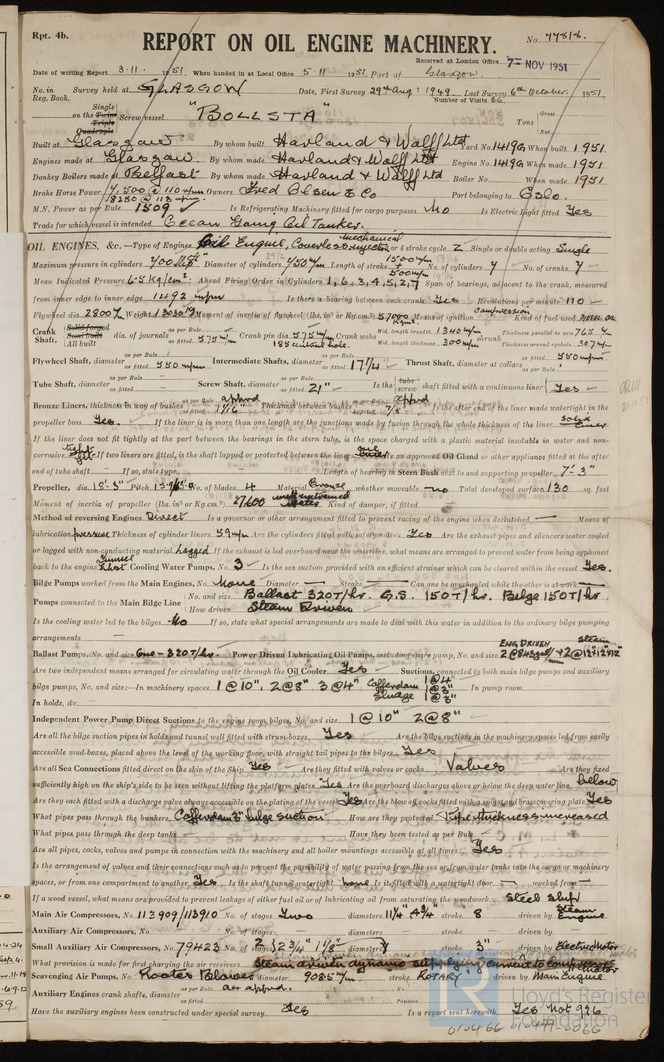 Rpt. 4b.
REPORT ON OIL ENGINE MACHINERY.
No. 77818.
Received at London Office 7- NOV 1951
Date of writing Report 3.11. 1951. When handed in at Local Office 5.11 1951. Port of Glasgow.
No. in Reg. Book. Survey held at GLASGOW Date, First Survey 29th Aug: 1949. Last Survey 6th October. 1951
Number of Visits 66.
on the Single Twin Triple Quadruple Screw vessel "BOLLSTA" Tons Gross Net
Built at Glasgow By whom built Harland & Wolff Ltd Yard No. 1419G When built 1951
Engines made at Glasgow. By whom made Harland & Wolff Ltd Engine No. 1419G When made 1951
Donkey Boilers made at Belfast By whom made Harland & Wolff Ltd Boiler No. When made 1951
Brake Horse Power 7,500 @ 110 r/pm 8250 @ 115 r/pm. Owners Fred Olsen & Co Port belonging to Oslo.
M.N. Power as per Rule 1509 Is Refrigerating Machinery fitted for cargo purposes No Is Electric Light fitted Yes
Trade for which vessel is intended Ocean Going Oil Tanker.
OIL ENGINES, &c.—Type of Engines Oil Engine, Coverless mechanical injection 2 or 4 stroke cycle 2 Single or double acting Single
Maximum pressure in cylinders Diameter of cylinders 750 m/m Length of stroke 1500 m/m + 500 m/m No. of cylinders 7 No. of cranks 7
Mean Indicated Pressure 6.5 Kg/cm². Ahead Firing Order in Cylinders 1, 6, 3, 4, 5, 2, 7 Span of bearings, adjacent to the crank, measured
from inner edge to inner edge 1492 m/m Is there a bearing between each crank Yes Revolutions per minute 110
Flywheel dia. 2800 m/m Weight Moment of inertia of flywheel (lbs. in² or Kg.cm²) Means of ignition compression Kind of fuel used
Crank Shaft, Solid forged Semi built All built dia. of journals as per Rule as fitted 575 m/m Crank pin dia. 575 m/m Crank webs Mid. length breadth 1340 m/m Mid. length thickness 300 m/m shrunk Thickness parallel to axis 765 Thickness around eyehole 307
Flywheel Shaft, diameter as per Rule as fitted 550 m/m Intermediate Shafts, diameter as per Rule as fitted 17¼" Thrust Shaft, diameter at collars as per Rule as fitted 550 m/m
Tube Shaft, diameter as per Rule as fitted Screw Shaft, diameter as per Rule as fitted 21" Is the tube screw shaft fitted with a continuous liner Yes
Bronze Liners, thickness in way of bushes as per Rule apprd as fitted Thickness between bushes as per Rule apprd as fitted 7/8 Is the after end of the liner made watertight in the
propeller boss Yes. If the liner is in more than one length are the junctions made by fusion through the whole thickness of the liner solid liner
If the liner does not fit tightly at the part between the bearings in the stern tube, is the space charged with a plastic material insoluble in water and non-
corrosive tight fit If two liners are fitted, is the shaft lapped or protected between the liners Is an approved Oil Gland or other appliance fitted at the after
end of tube shaft If so, state type Length of bearing in Stern Bush next to and supporting propeller 7'-3"
Propeller, dia. 18'-3" Pitch No. of blades 4 Material Bronze whether moveable no Total developed surface 130 sq. feet
Moment of inertia of propeller (lbs. in² or Kg.cm²) 27,600 Kind of damper, if fitted
Method of reversing Engines Direct Is a governor or other arrangement fitted to prevent racing of the engine when declutched Means of
lubrication pressure Thickness of cylinder liners 59 m/m Are the cylinders fitted with safety valves Yes Are the exhaust pipes and silencers water cooled
or lagged with non-conducting material Lagged If the exhaust is led overboard near the waterline, what means are arranged to prevent water from being syphoned
back to the engine Funnel exhst Cooling Water Pumps, No. 3 Is the sea suction provided with an efficient strainer which can be cleared within the vessel Yes.
Bilge Pumps worked from the Main Engines, No. None Diameter Stroke Can one be overhauled while the other is at work
Pumps connected to the Main Bilge Line No. and size Ballast 320T/hr. G.S. 150T/hr. Bilge 150T/hr.
How driven Steam Driven
Is the cooling water led to the bilges No If so, state what special arrangements are made to deal with this water in addition to the ordinary bilge pumping
arrangements
Ballast Pumps, No. and size One - 320T/hr. Power Driven Lubricating Oil Pumps, including spare pump, No. and size ENG DRIVEN Steam
Are two independent means arranged for circulating water through the Oil Cooler Yes Suctions, connected to both main bilge pumps and auxiliary
bilge pumps, No. and size:—In machinery spaces 1 @ 10", 2 @ 8" 3 @ 4" Cofferdam 1 @ 4" 1 @ 3" In pump room
In holds, &c.
Independent Power Pump Direct Suctions to the engine room bilges, No. and size 1 @ 10" 2 @ 8"
Are all the bilge suction pipes in holds and tunnel well fitted with strum-boxes Yes Are the bilge suctions in the machinery spaces led from easily
accessible mud-boxes, placed above the level of the working floor, with straight tail pipes to the bilges Yes
Are all Sea Connections fitted direct on the skin of the Ship Yes Are they fitted with valves or cocks Valves Are they fixed
sufficiently high on the ship's side to be seen without lifting the platform plates Yes Are the overboard discharges above or below the deep water line below
Are they each fitted with a discharge valve always accessible on the plating of the vessel Yes Are the blow off cocks fitted with a spigot and brass covering plate Yes
What pipes pass through the bunkers Cofferdam 3" bilge suction How are they protected Pipe thickness increased
What pipes pass through the deep tanks Have they been tested as per Rule
Are all pipes, cocks, valves and pumps in connection with the machinery and all boiler mountings accessible at all times Yes
Is the arrangement of valves and their connections such as to prevent the possibility of water passing from the sea or from water tanks into the cargo or machinery
spaces, or from one compartment to another Yes Is the shaft tunnel watertight none Is it fitted with a watertight door worked from
If a wood vessel, what means are provided to prevent leakage of either fuel oil or of lubricating oil from saturating the woodwork Steel Ship
Main Air Compressors, No. 113909/113910 No. of stages Two diameters 11¼" 4¾" stroke 8 driven by Steam Engine
Auxiliary Air Compressors, No. No. of stages diameters stroke driven by
Small Auxiliary Air Compressors, No. 79423 No. of stages 2 diameters 2¾" 1⅛" stroke 3" driven by Electric Motor
What provision is made for first charging the air receivers Steam driven dynamo supplying current to compressor motor
Scavenging Air Pumps, No. Rootes Blower diameter 908.5 m/m stroke ROTARY driven by Main Engine
Auxiliary Engines crank shafts, diameter as per Rule as apprd. as fitted No. Position
Have the auxiliary engines been constructed under special survey Yes Is a report sent herewith Yes Not 926
Lloyd's Register Foundation
010466-010477-0066